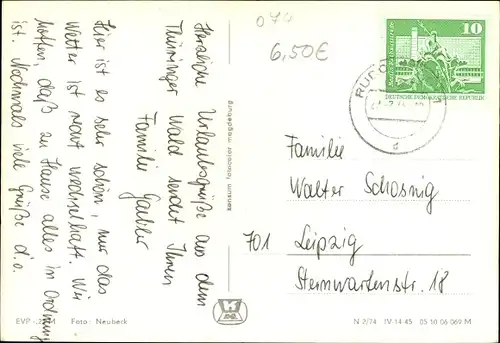 Herzliche Urlaubsgrüße aus dem
Thüringer Wald sendet Ihnen
Familie
Hier ist es sehr schön, nur das
Wetter ist sehr wechselhaft. Wir
hoffen, daß zu Hause alles in Ordnung
ist. Nochmals viele Grüße d.o.
074
6,50€
10
DEUTSCHE DEMOKRATISCHE REPUBLIK
Familie
Walter Schossnig
701 Leipzig
Sternwartenstr. 18
EVP Foto: Neubeck
N 2/74 IV-14-45 05 10 06 069 M